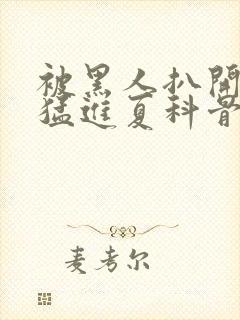 被黑人扒開
猛進夏科普
麦考尔